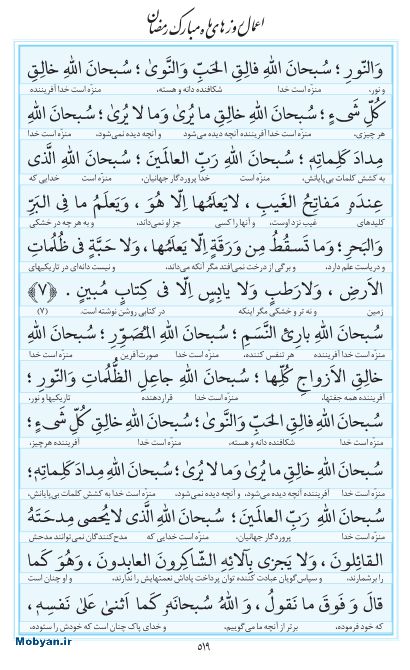 اعمال روزهای ماه مبارک رمضان
وَالنّورِ ؛ سُبحانَ اللهِ فالِقِ الحَبِّ وَالنَّویٰ ؛ سُبحانَ اللهِ خالِقِ
و نور، منزّه است خدا شکافنده دانه و هسته، منزّه است خدا آفریننده
کُلِّ شَیءٍ ؛ سُبحانَ اللهِ خالِقِ ما یُریٰ وَما لا یُریٰ ؛ سُبحانَ اللهِ
هر چیزی، منزّه است خدا آفریننده آنچه دیده می‌شود و آنچه دیده نمی‌شود، منزّه است خدا
مِدادَ کَلِماتِهٖ ؛ سُبحانَ اللهِ رَبِّ العالَمینَ ؛ سُبحانَ اللهِ الَّذی
به کشش کلمات بی‌پایانش، منزّه است خدا پروردگار جهانیان، منزّه است خدایی که
عِندَهٗ مَفاتِحُ الغَیبِ ، لایَعلَمُها اِلّا هُوَ ، وَیَعلَمُ ما فِی البَرِّ
کلیدهای غیب نزد اوست، و آنها را کسی جز او نمی‌داند، و به هر چه در خشکی
وَالبَحرِ ؛ وَما تَسقُطُ مِن وَرَقَةٍ اِلّا یَعلَمُها ، وَلا حَبَّةٍ فی ظُلُماتِ
و دریاست علم دارد، و برگی از درخت نمی‌افتد مگر آنکه می‌داند، و نیست دانه‌ای در تاریکیهای
الاَرضِ ، وَلارَطبٍ وَلا یابِسٍ اِلّا فی کِتابٍ مُبینٍ . ﴿۷﴾
زمین و نه تر و خشکی مگر اینکه در کتابی روشن نوشته است. (۷)
سُبحانَ اللهِ بارِئِ النَّسَمِ ؛ سُبحانَ اللهِ المُصَوِّرِ ؛ سُبحانَ اللهِ
منزّه است خدا آفریننده هر تنفس کننده، منزّه است خدا صورت‌آفرین منزّه است خدا
خالِقِ الاَزواجِ کُلِّها ؛ سُبحانَ اللهِ جاعِلِ الظُّلُماتِ وَالنّورِ ؛
آفریننده همه جفتها، منزّه است خدا قراردهنده تاریکیها و نور،
سُبحانَ اللهِ فالِقِ الحَبِّ وَالنَّویٰ ؛ سُبحانَ اللهِ خالِقِ کُلِّ شَیءٍ ؛
منزّه است خدا شکافنده دانه و هسته، منزّه است خدا آفریننده هرچیز،
سُبحانَ اللهِ خالِقِ ما یُریٰ وَما لا یُریٰ ؛ سُبحانَ اللهِ مِدادَ کَلِماتِهٖ ؛
منزّه است خدا آفریننده آنچه دیده می‌شود، و آنچه دیده نمی‌شود، منزّه است خدا به کشش کلمات بی‌پایانش،
سُبحانَ اللهِ رَبِّ العالَمینَ ؛ سُبحانَ اللهِ الَّذی لایُحصی مِدحَتَهُ
منزّه است خدا پروردگار جهانیان، منزّه است خدایی که مدح‌کنندگان نمی‌توانند مدحش
القائِلونَ ، وَلا یَجزی بِآلائِهِ الشّاکِرونَ العابِدونَ ، وَهُوَ کَما
را برشمارند، و سپاس‌گویان عبادت کننده توان پرداخت پاداش نعمتهایش را ندارند، و او چنان است
قالَ وَ فَوقَ ما نَقولُ ، وَ اللهُ سُبحانَهٗ کَما اَثنیٰ عَلیٰ نَفسِهٖ ،
که خود فرموده، برتر از آنچه ما می‌گوییم، و خدای پاک چنان است که خودش را ستوده،
۵۱۹
Mobyan.ir